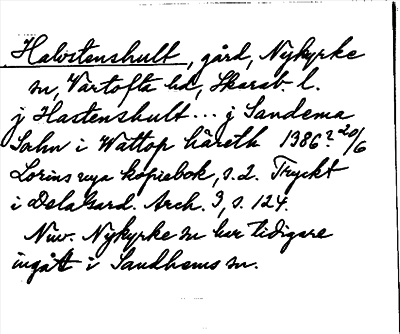 Halvstenshult, gård, Nykyrke
sn, Vartofta hd, Skarab. l.
j Hastenshult... j Sandema
Sokn i Wattop häreth 1386? 20/6
Lorins nya kopiebok, s. 2. Tryckt
i DelaGard. Arch. 9, s. 124.
Nuv. Nykyrke sn har tidigare
ingått i Sandhems sn.